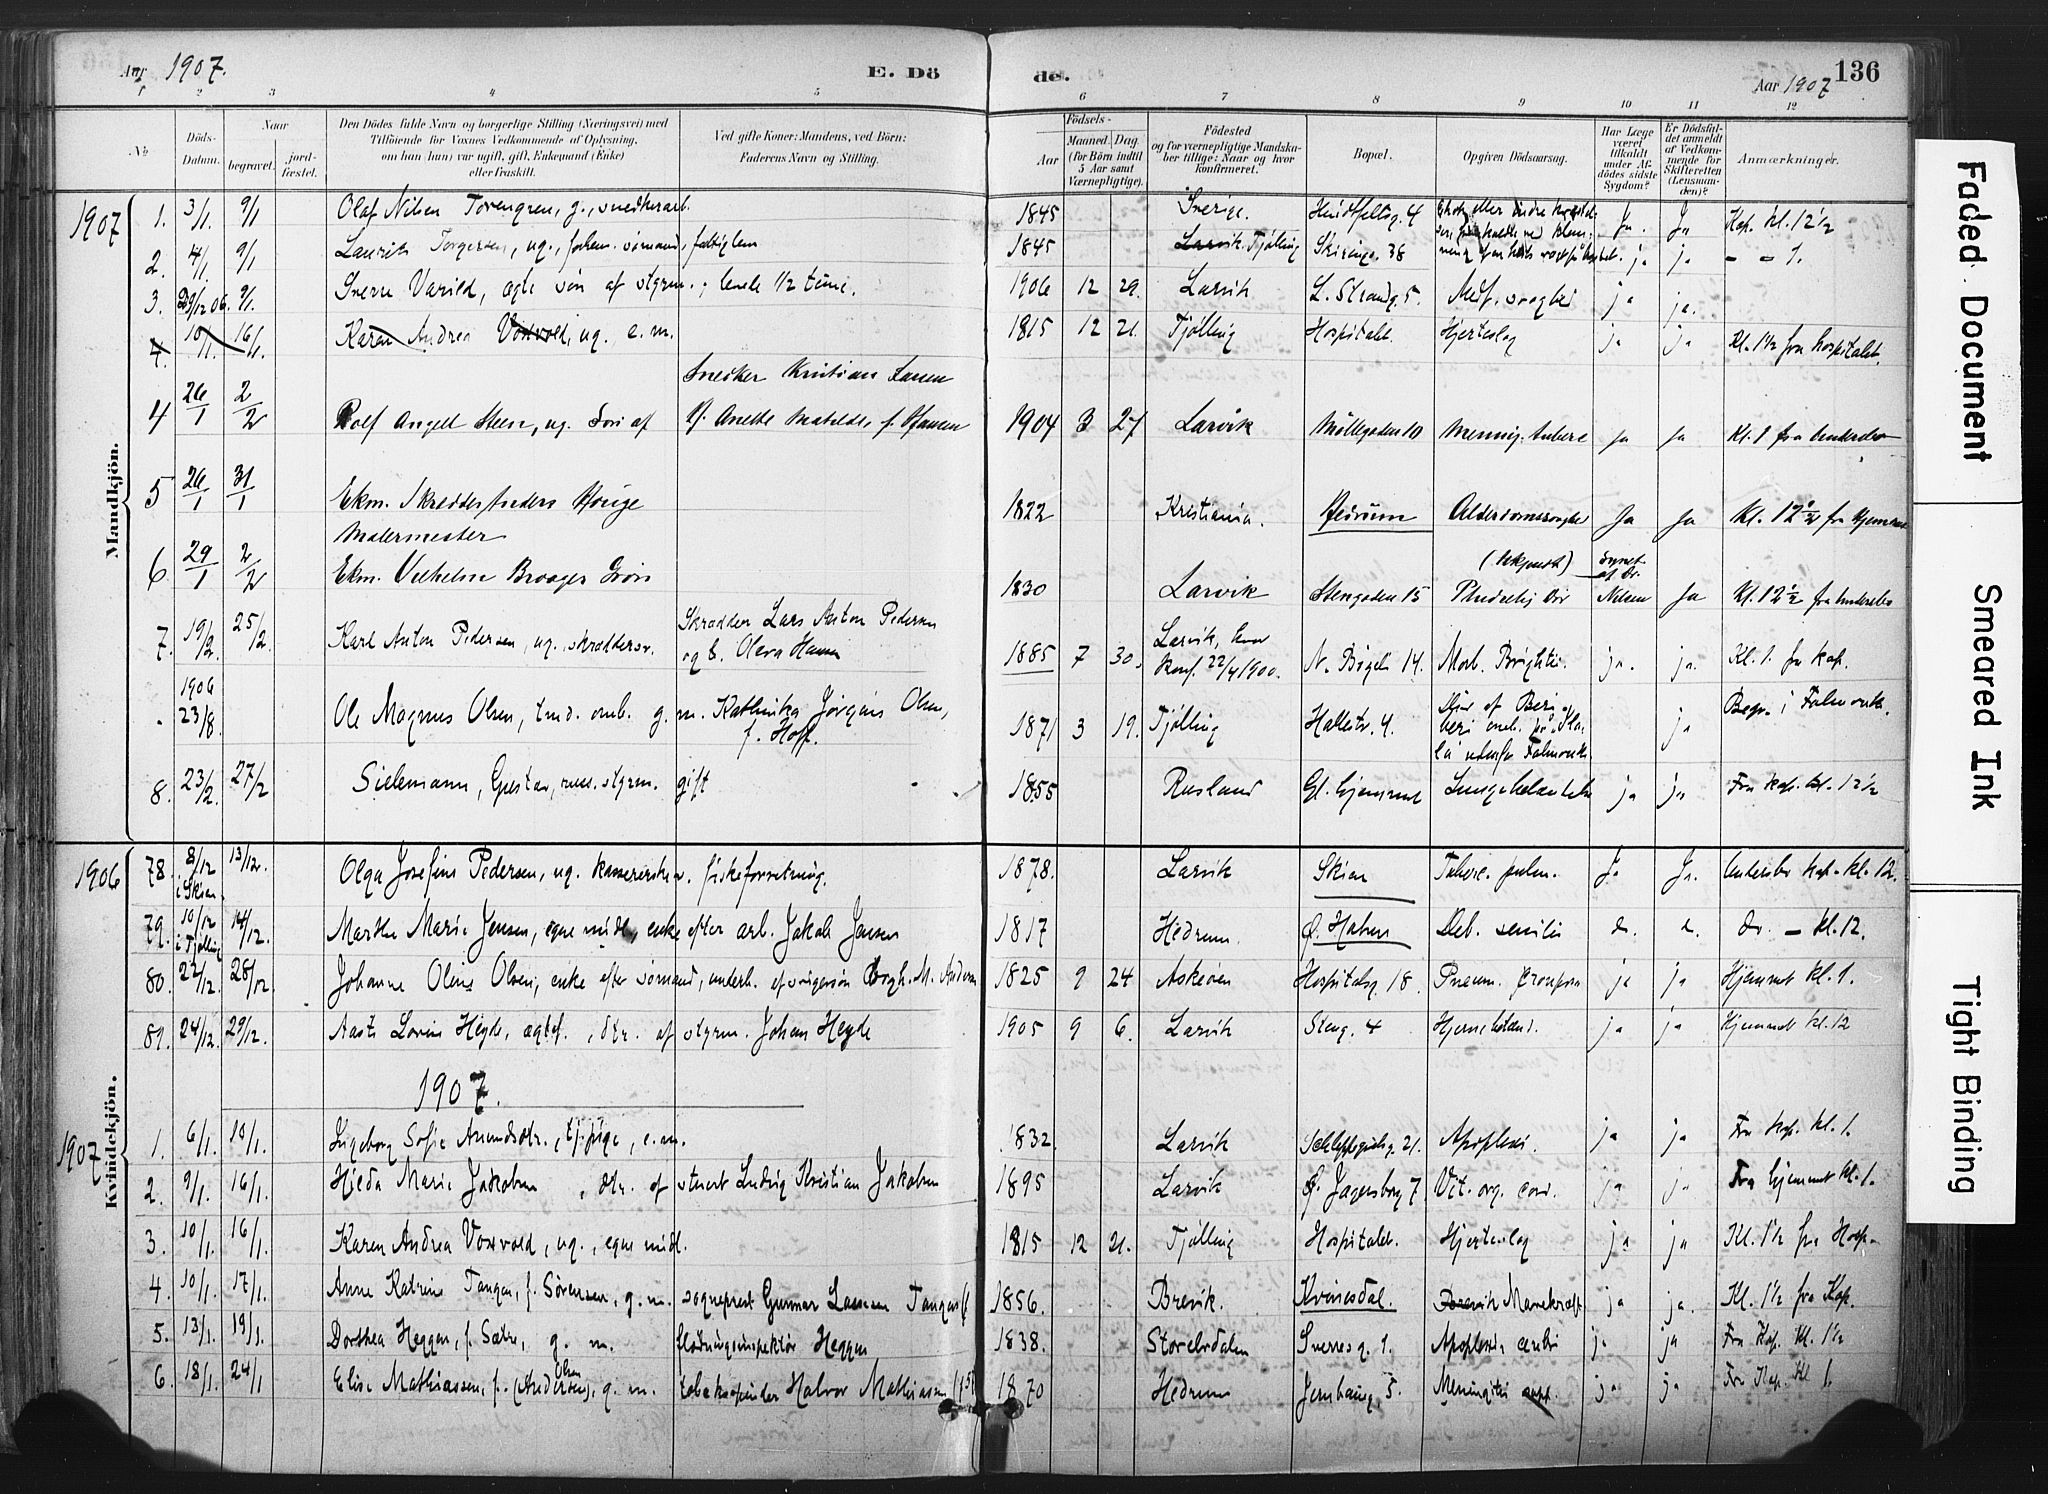 Aar 1907.
E. Dö
de.
Aar 1907
136
1 2 3 4 5 6 7 8 9 10 11 12
No
Döds-
Datum.
Naar
begravet.
jord-
fæstet.
Den Dödes fulde Navn og borgerlige Stilling (Næringsvei) med
Tilföiende for Voxnes Vedkommende af Oplysning,
om han (hun) var ugift, gift, Enkemand (Enke)
eller fraskilt.
Ved gifte Koner: Mandens, ved Börn:
Faderens Navn og Stilling.
Födsels-
Aar
Maaned.
Dag.
(for Börn indtil
5 Aar samt
Værnepligtige).
Födested
og for værnepligtige Mandska-
ber tillige: Naar og hvor
konfirmeret.
Bopæl.
Opgiven Dödsaarsag.
Har Læge
været
tilkaldt
under Af-
dödes sidste
Sygdom?
Er Dödsfal-
det anmeldt
af Vedkom-
mende for
Skifteretten
(Lensman-
den)?
Anmærkninger.
1907
Mandkjön.
1. 3/1. 9/1 Olaf Nilsen Torengren, g., snedkerarb. 1845 Sverige. 4 Ja. Ja Kap. kl. 12½
2. 4/1. 9/1 Laurits Torgersen, ug., forhen. sömand, fattiglem 1845 Larvik. Tjölling Skiringr. 38 ja ja – – 1.
3. 29/12 06. 9/1. Sverre Varild, ægte sön af styrm., levede 1/2 time. 1906 12 29. Larvik L. Strandg. 5. Medf. svaghed ja ja.
4. 10/1. 16/1. Karen Andrea Voxvold, ug. e. m. 1815 12 21. Tjölling Hospitalet. Hjerteslag ja ja Kl. 1½ fra hospitalet.
Snedker Kristian Larsen
4 26/1 2/2 Rolf Angell Steen, ug. Sön af Anette Matilde f. Hansen 1904 3 27 Larvik Möllegaden 10 Ja Ja Kl. 1 fra Undersbo
5 26/1 31/1 Ekm. Skrædder Anders Hauge 1822 Kristiania. Hedrum Alderdomssvaghed Ja Ja Kl. 12½ fra Hjemmet
Malermester
6 29/1 2/2 Ekm. Vilhelm Braager Grön 1830 Larvik Stengaden 15 Pludselig Död Synet af Dr. Nilsen Ja Kl. 12½ fra Undersbo
7. 19/2. 25/2. Karl Anton Pedersen, ug., skræddersv. Skrædder Lars Anton Pedersen
og h. Olava Hansen 1885 7 30. Larvik, hvor
konf. 22/4 1900. N. Bögeli 14. Morb. Brightii. ja. ja. Kl. 1. fra kap.
1906
23/8 Ole Magnus Olsen, tmd. omb. g. m. Kathinka Jörgine Olsen,
f. Hoff. 1871 3 19. Tjölling Hallestr. 4. ja Begr. i Falmouth.
8. 23/2. 27/2 Sielemann, Gustav, russ. styrm. gift 1855 Rusland Gl. hjemmet Lungebetændelse ja ja Fra kap. kl. 12½
1906
Kvindekjön.
78. 8/12 i Skien. 13/12. Olga Josefine Pedersen, ug. kassererske v. fiskeforretning. 1878. Larvik Skien Tuberc. pulm. Ja Ja. Undersbo kap. kl. 12.
79. 10/12 i Tjölling 14/12. Marthe Marie Jensen, egne midl., enke efter arb. Jakob Jensen 1817 Hedrum. Ö. Halsen Deb. senilis do. do. do. – kl. 12.
80. 22/12. 28/12 Johanne Oline Olsen, enke efter sömand, underh. af svigersön 1825 9 24. Askeröen Hospitalsg. 18. Pneum. crouposa ja ja Hjemmet kl. 1.
81. 24/12. 29/12. Aasta Lovise Heyde, ægtef., dtr. af styrm. Johan Heyde 1905 9 6. Larvik Steng. 4 Hjernebetænd. ja ja Hjemmet kl. 12
1907.
1907
1. 6/1. 10/1. Ingeborg Sofie Amundsdtr., tjpige, e. m. 1832. Larvik 21. Apoplexi. ja ja Fra kap. kl. 1.
2. 9/1. 16/1. Hilda Marie Jakobsen, dtr. af stuert Ludvig Kristian Jakobsen 1895 Larvik Ö. Jagersborg 7 Vit. org. cord. ja ja Fra hjemmet kl. 1.
3. 10/1. 16/1. Karen Andrea Voxvold, ug., egne midl. 1815 12 21. Tjölling Hospitalet. Hjerteslag ja ja Kl. 1½ fra Hosp.
4. 10/1. 17/1. Anne Katrine Tangen, f. Sörensen, g. m. sogneprest Gunnar Lassesen Tangen 1856. Brevik. Kvinesdal. Mavekræft ja ja. Kl. 1½ fra Kap.
5. 13/1. 19/1. Dorthea Heggen, f. Sætre, g. m. flödningsinspektör Heggen 1838. Storelvdalen Sverresg. 1. Apoplexia cerebri ja ja Fra Kap. kl. 1½
6. 18/1. 24/1 Elise Mathiassen, f. (Andersen), Olsen g. m. tobakspinder Halvor Mathiassen 1870 Hedrum Jernbaneg. 5. Meningitis ja ja Fra Kap. kl 1.
Faded Document
Smeared Ink
Tight Binding